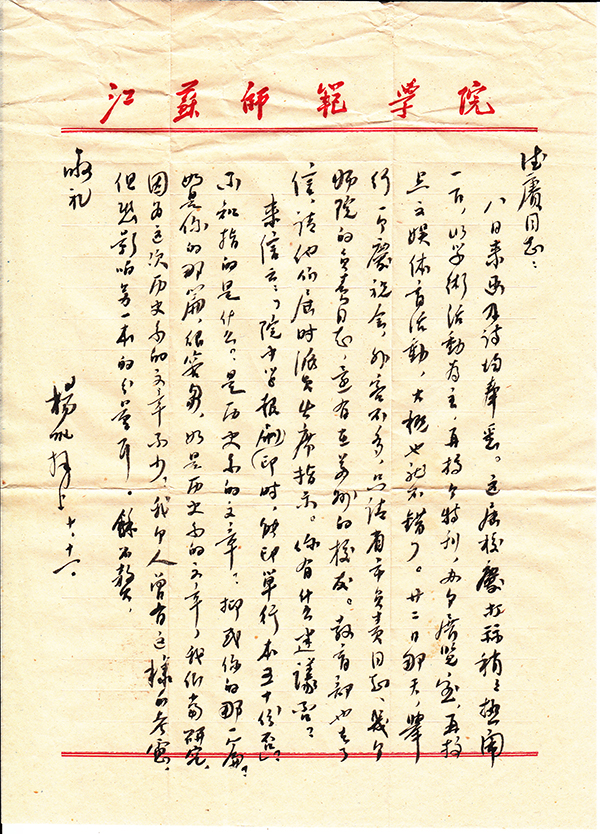 江苏师范学院
德赓同志：
八日来函及诗均奉悉。这届校庆打算稍稍热闹
一下，以学術活動为主，再搞个特刊，办个展览会，再搞
点文娱体育活動，大概也就不错了。廿二日那天，舉
行一个慶祝会，外客不多，只请省市负责同志、幾个
师院的负责同志，还有在苏州的校友。教育部也去了
信，请他们届时派员出席指示。你有什么建議否？
来信云：“院中学报刷(印)时，能印單行本五十份否”，
不知指的是什么？是历史系的文章？抑或你的那一篇？
如是你的那篇，很容易，如是历史系的文章，我们当研究，
因为这次历史系的文章不少，我个人曾有这樣的考慮，
但出影响另一本的份量耳。餘不赘，
敬礼
楊 上 十、十一